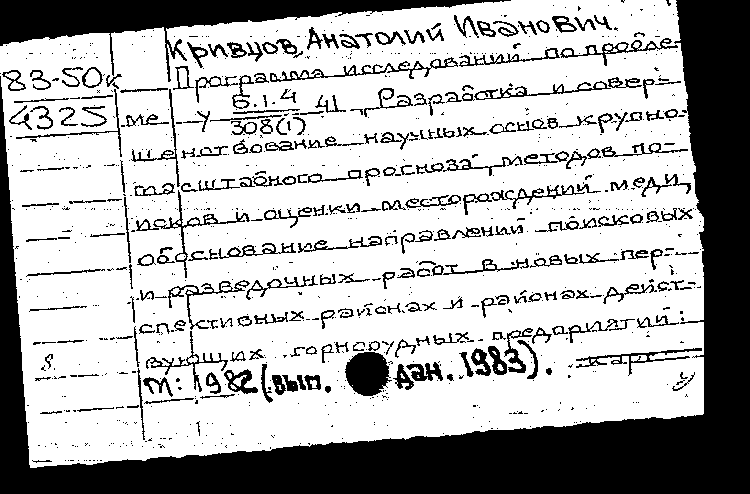 Кривцов, Анатолий Иванович.
83-50к
4325
Программа исследований по пробле-
ме У 5.1.4 41 „Разработка и совер-
308(1)
шенствование научных основ крупно-
масштабного прогноза, методов по-
исков и оценки месторождений меди,
обоснование направлений поисковых
и разведочных работ в новых пер-
спективных районах и районах дейст-
вующих горнорудных предприятий:
8.
М: 1982 (вып. дан. 1983).